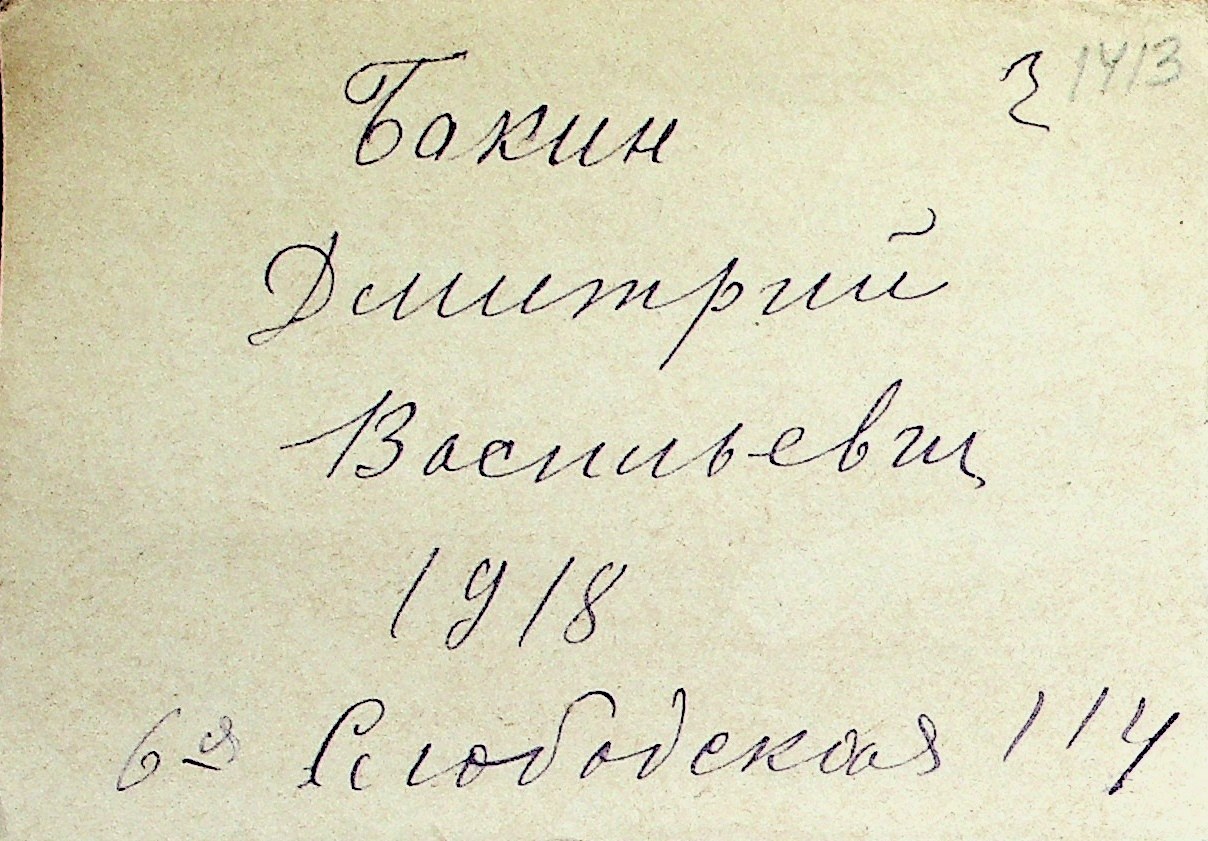 1413
Бакин
Дмитрий
Васильевич
1918
6я Слободская 114